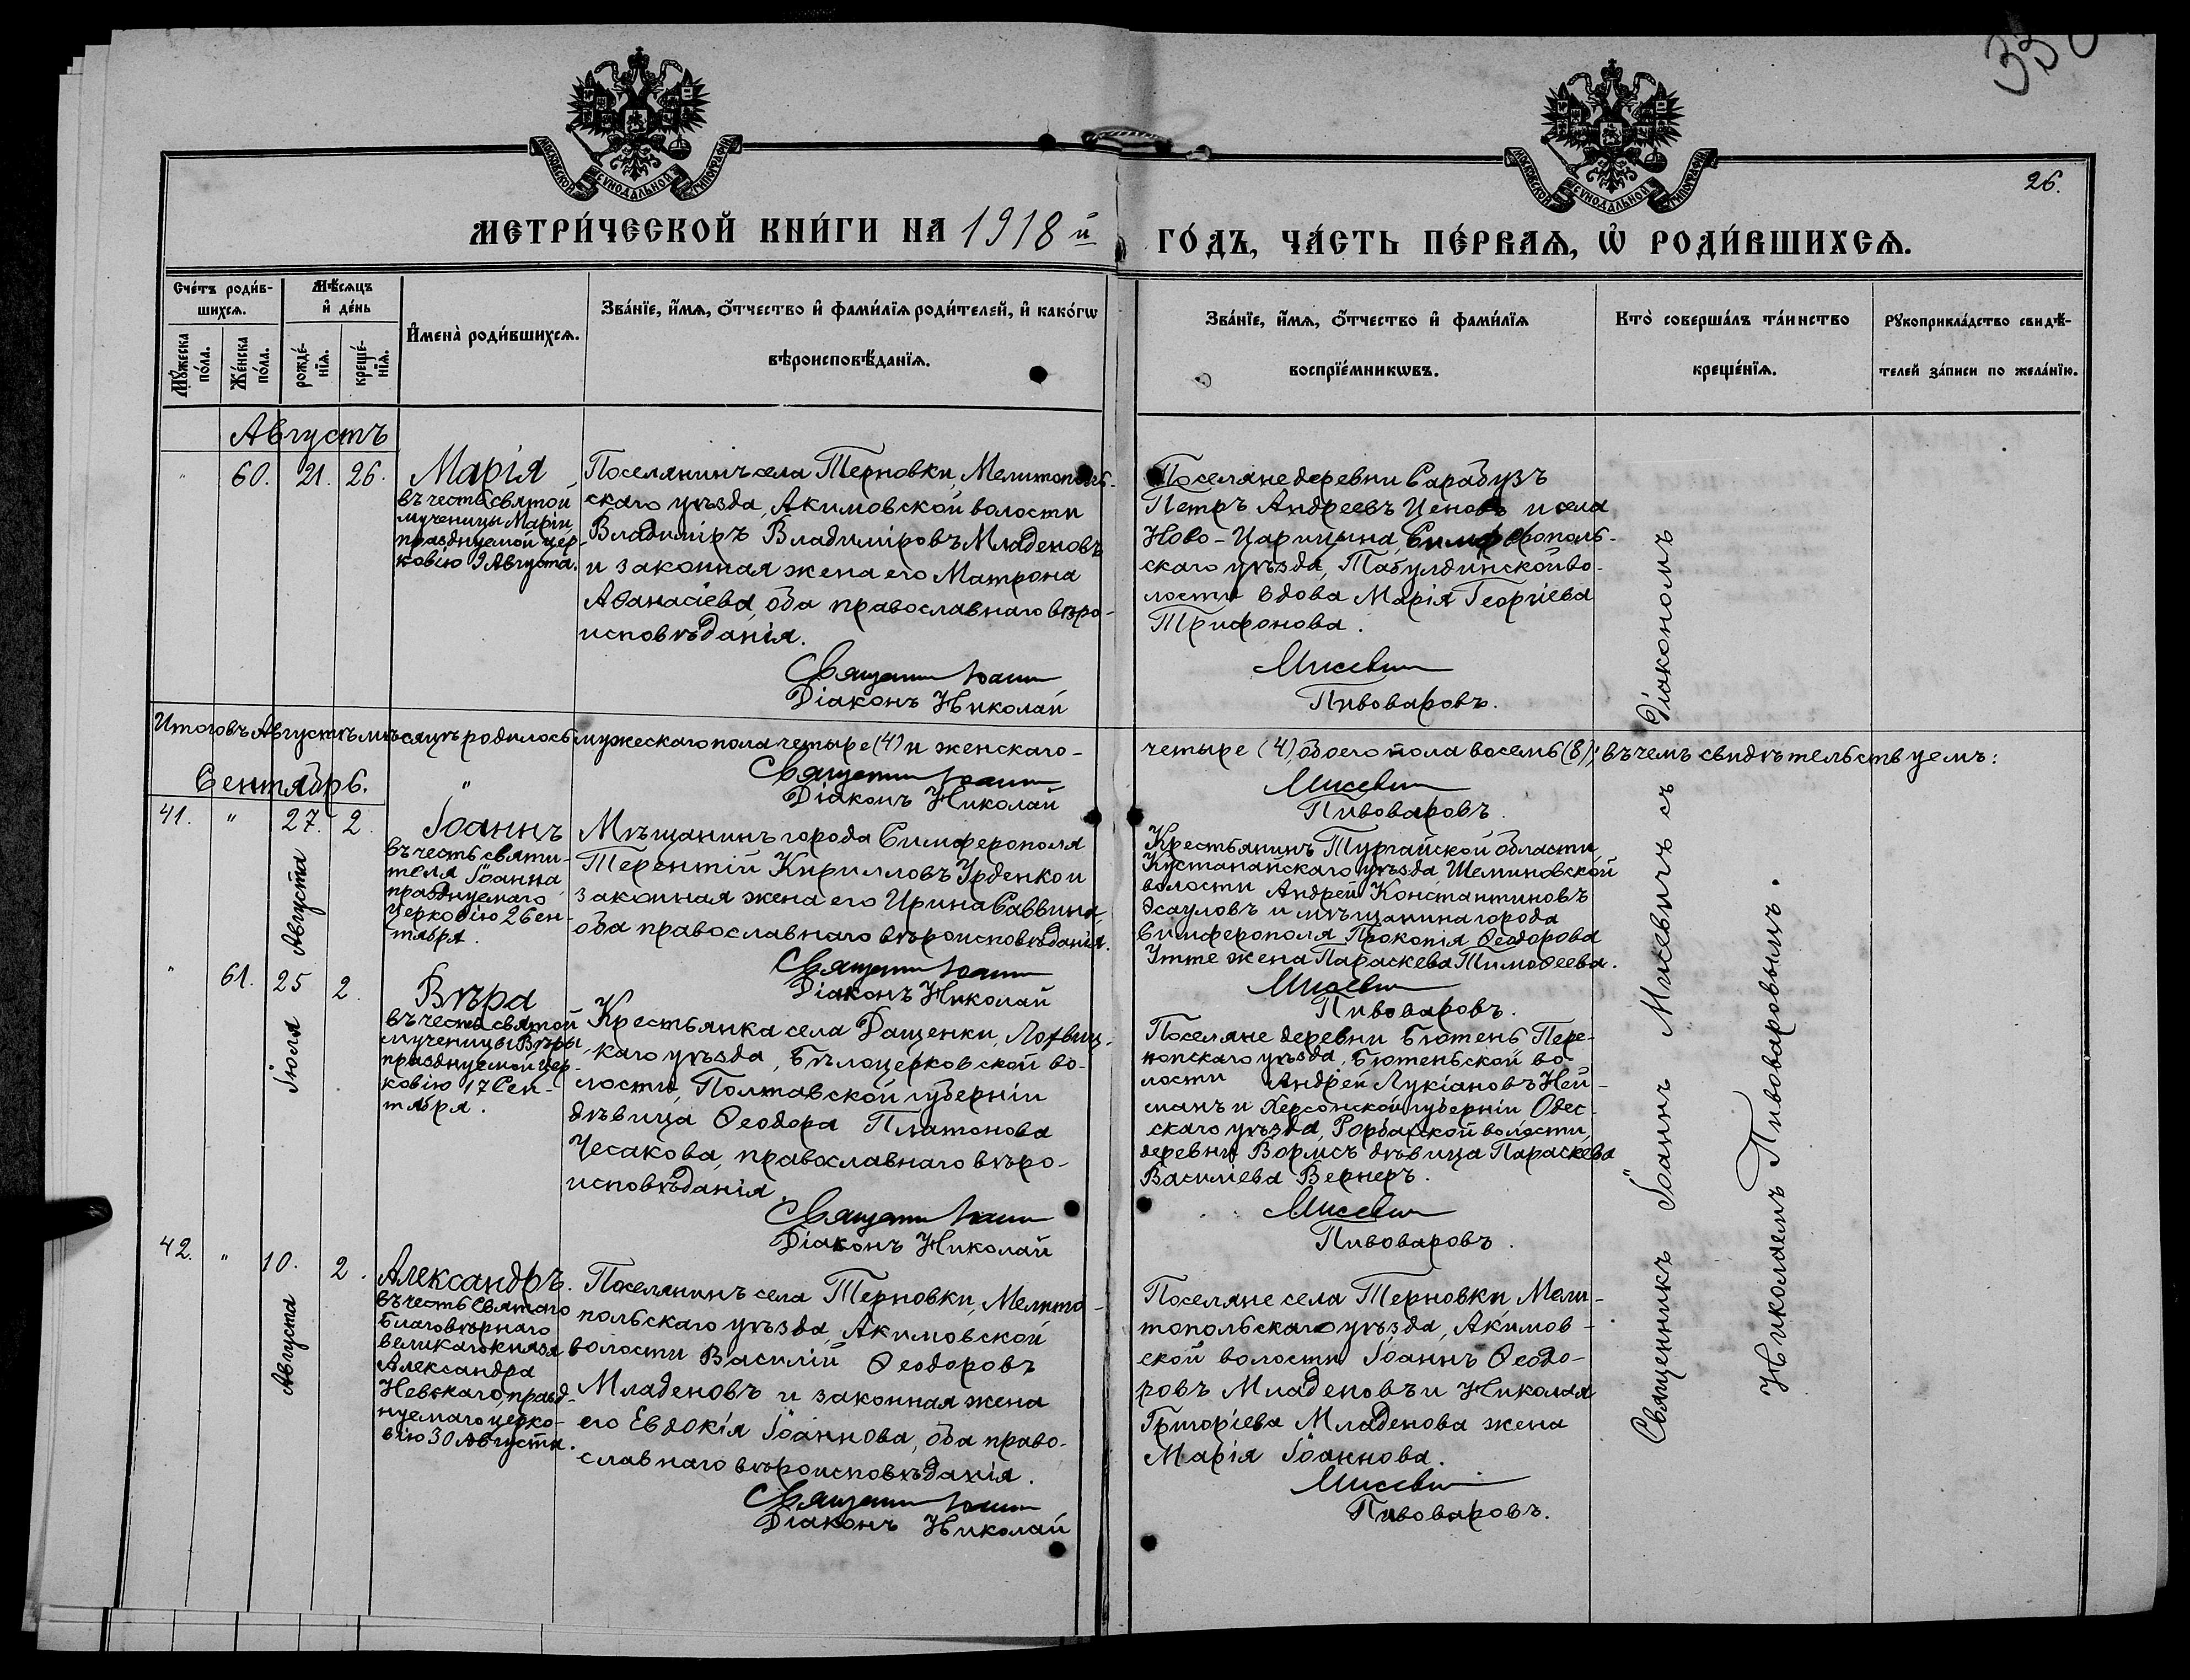 330
26.
МОСКОВСКОЙ СѴНОДАЛЬНОЙ ТИПОГРАФІИ
МОСКОВСКОЙ СѴНОДАЛЬНОЙ ТИПОГРАФІИ
МЕТРИ́ЧЕСКОЙ КНИ́ГИ НА 1918й ГО́ДЪ, ЧА́СТЬ ПЕ́РВАѦ, Ѡ҆ РОДИ́ВШИХСѦ.
Сче́тъ роди́в-
шихсѧ.
Мꙋ́жеска
по́ла.
Же́нска
по́ла.
Мѣ́сѧцъ
и҆ де́нь
рожде́-
нїѧ.
креще́-
нїѧ.
И҆мена̀ роди́вшихсѧ.
Зва́нїе, и҆́мѧ, ѻ҆́тчество и҆ фами́лїѧ роди́телей, и҆ како́гѡ
вѣроисповѣ́данїѧ.
Зва́нїе, и҆́мѧ, ѻ҆́тчество и҆ фами́лїѧ
воспрїе́мникѡвъ.
Кто̀ соверша́лъ та́инство
креще́нїѧ.
Рꙋкоприкла́дство свидѣ́-
телей за́писи по жела́нїю.
Августъ
" 60. 21. 26.
Марія
въ честь святой
мученицы Маріи,
празднуемой цер-
ковію 9 Августа.
Поселянинъ села Терновки, Мелитополь-
скаго уѣзда, Акимовской волости
Владиміръ Владиміровъ Младеновъ
и законная жена его Матрона
Аѳанасіева, оба православнаго вѣро-
исповѣданія.
Священн Іоанн
Діаконъ Николай
Поселяне деревни Сарабузъ
Петръ Андреевъ Ценовъ и села
Ново-Царицына, Симферополь-
скаго уѣзда, Табулдинской во-
лости вдова Марія Георгіева
Трифонова.
Мисевич
Пивоваровъ.
Итого въ Августѣ мѣсяцѣ родилось мужескаго пола четыре (4) и женскаго -
четыре (4), обоего пола восемь (8), въ чемъ свидѣтельствуемъ:
Священн Іоанн
Діаконъ Николай
Мисевич
Пивоваровъ.
Сентябрь.
41. " 27. 2.
Августа
Іоаннъ
въ честь святи-
теля Іоанна
празднуемаго
Церковію 2 Сен-
тября.
Мѣщанинъ города Симферополя
Терентій Кирилловъ Урденко и
законная жена его Ирина Саввина,
оба православнаго вѣроисповѣданія.
Священн Іоанн
Діаконъ Николай
Крестьянинъ Тургайской области
Кустанайскаго уѣзда Шеминовской
волости Андрей Константиновъ
Эсауловъ и мѣщанина города
Симферополя Прокопія Ѳеодорова
Утте жена Параскева Тимоѳеева.
Мисевич
Пивоваровъ.
" 61. 25 2.
Іюля
Вѣра
въ честь святой
мученицы Вѣры,
празднуемой цер-
ковію 17 Сен-
тября.
Крестьянка села Дащенки, Лохвиц-
каго уѣзда, Бѣлоцерковской во-
лости, Полтавской губерніи
дѣвица Ѳеодора Платонова
Чесакова, православнаго вѣро-
исповѣданія.
Священн Іоанн
Діаконъ Николай
Поселяне деревни Бютень Пере-
копскаго уѣзда, Бютеньской во-
лости Андрей Лукіановъ Ней-
манъ и Херсонской губерніи Одес-
скаго уѣзда, Рорбахской волости,
деревни Вормсъ дѣвица Параскева
Василіева Вернеръ.
Мисевич
Пивоваровъ.
42. " 10. 2.
Августа
Александръ.
въ честь Святаго
Благовѣрнаго
великаго князя
Александра
Невскаго, празд-
нуемаго церко-
вію 30 Августа.
Поселянинъ села Терновки, Мелито-
польскаго уѣзда, Акимовской
волости Василій Ѳеодоровъ
Младеновъ и законная жена
его Евдокія Іоаннова, оба право-
славнаго вѣроисповѣданія.
Священн Іоанн
Діаконъ Николай
Поселяне села Терновки Мели-
топольскаго уѣзда, Акимов-
ской волости Іоаннъ Ѳеодо-
ровъ Младеновъ и Николая
Григоріева Младенова жена
Марія Іоаннова.
Мисевич
Пивоваровъ.
Священникъ Іоаннъ Мисевичъ съ Діакономъ
Николаемъ Пивоваровымъ.